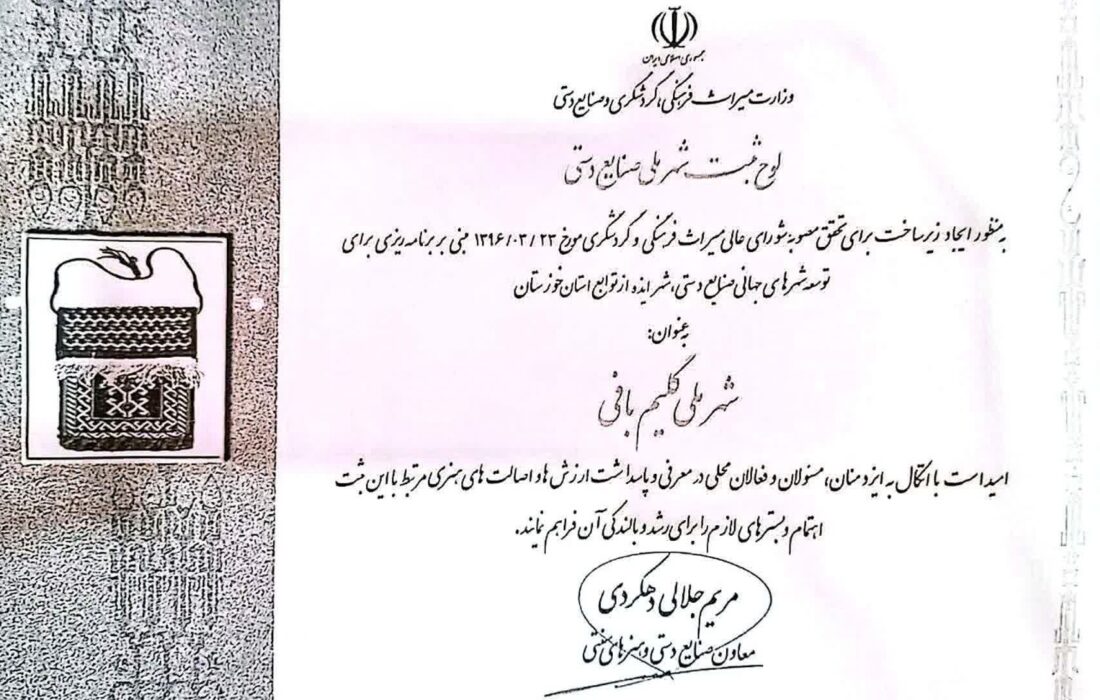 جمهوری اسلامی ایران
وزارت میراث فرهنگی، گردشگری و صنایع دستی
لوح ثبت شهر ملی صنایع دستی
به منظور ایجاد زیرساخت برای تحقق مصوبه شورای عالی میراث فرهنگی و گردشگری مورخ ۱۳۹۶/۰۳/۲۳ مبنی بر برنامه ریزی برای
توسعه شهرهای جهانی صنایع دستی، شهر ایذه از توابع استان خوزستان
به عنوان:
شهر ملی گلیم بافی
امید است با اتکال به ایزد منان، مسئولان و فعالان محلی در معرفی و پاسداشت ارزش ها و اصالت های هنری مرتبط با این ثبت
اهتمام و بسترهای لازم را برای رشد و بالندگی آن فراهم نمایند.
مریم جلالی دهکردی
معاون صنایع دستی و هنرهای سنتی